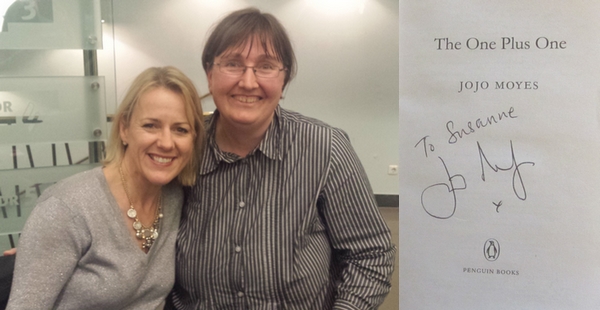 3
OR
OR
The One Plus One
JOJO MOYES
To Susanne
Jojo Moyes
x
PENGUIN BOOKS